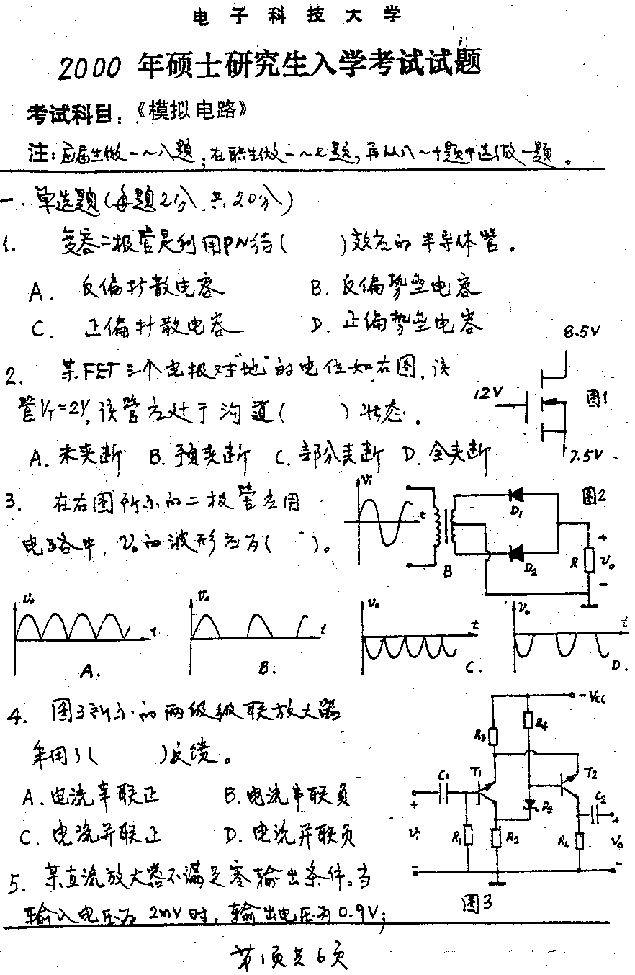 电子科技大学
2000年硕士研究生入学考试试题
考试科目:《模拟电路》
注:应届生做一~八题;在职生做一~七题,再从八~十题中选做一题。
一.单选题(每题2分,共20分)
1. 变容二极管是利用PN结( )效应的半导体管。
A. 反偏扩散电容 B. 反偏势垒电容
C. 正偏扩散电容 D. 正偏势垒电容
2. 某FET三个电极对"地"的电位如右图,该
管VT=2V,该管应处于沟道( )状态。
A. 未夹断 B. 预夹断 C. 部分夹断 D. 全夹断
8.5V
12V
图1
7.5V
3. 在右图所示的二极管应用
电路中,Vo的波形应为( )。
Vi
t
B
D1
D2
图2
R
+
Vo
-
Vo
t
A.
Vo
t
B.
Vo
t
C.
Vo
t
D.
4. 图3所示的两级级联放大器
采用了( )反馈。
A. 电流串联正 B. 电流串联负
C. 电流并联正 D. 电流并联负
-Vcc
R3
R4
C1
T1
T2
C2
+
Vi
-
R1
R2
+
Vo
-
图3
5. 某直流放大器不满足零输出条件。当
输入电压为2mV时,输出电压为0.9V;
第1页共6页